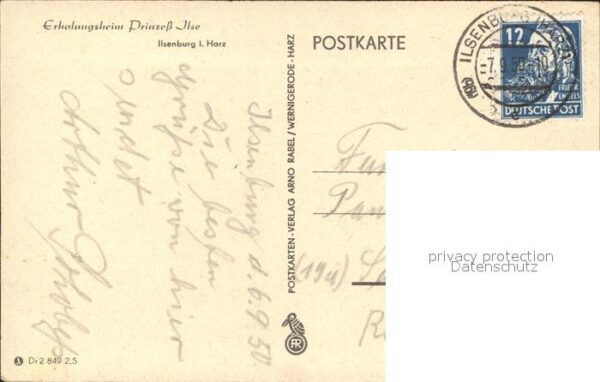 Erholungsheim Prinzeß Ilse
Ilsenburg i. Harz
Ilsenburg d. 6.9.50.
Die besten
Grüße von hier
sendet
Arthur
D+2 849 2,5
POSTKARTEN-VERLAG ARNO RABEL/WERNIGERODE-HARZ
AR
POSTKARTE
ILSENBURG (HARZ)
-7.9.50.-10
12
FRIEDR
ENGELS
DEUTSCHE POST
(19a)
privacy protection
Datenschutz